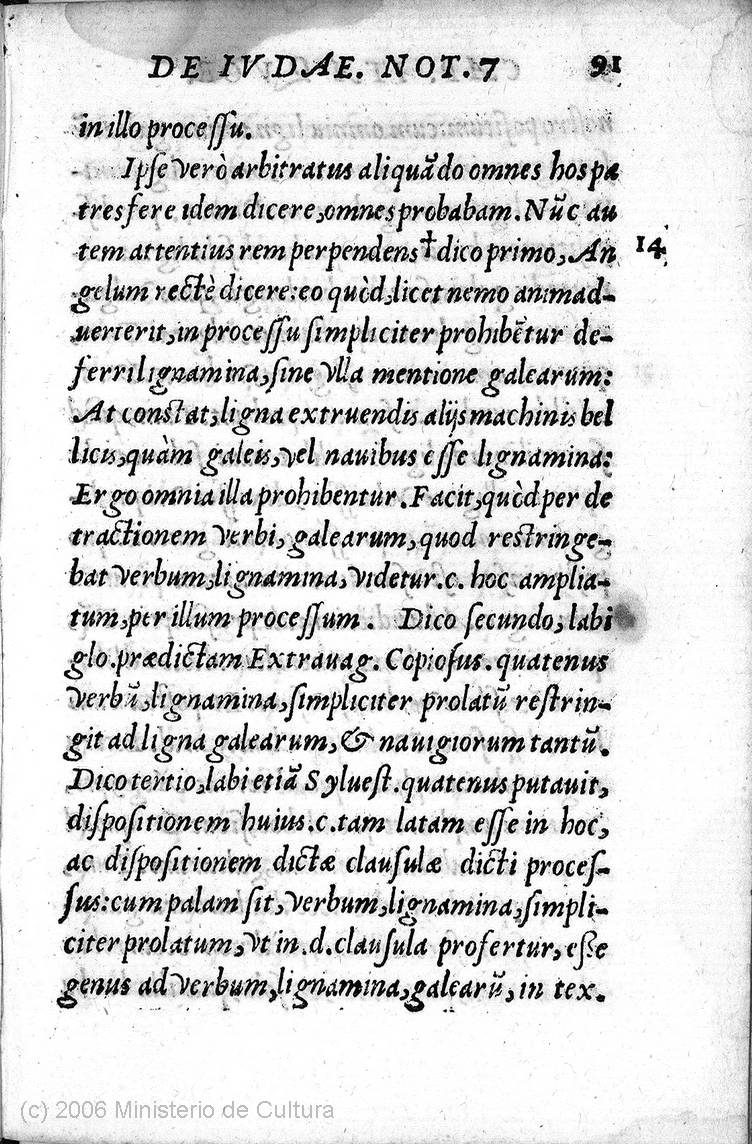 DE IVDAE. NOT. 7 91
in illo processu.
Ipse verò arbitratus aliquãdo omnes hos pa
tres fere idem dicere, omnes probabam. Nũc au
tem attentius rem perpendens † dico primo, An 14
gelum rectè dicere: eo quòd, licet nemo animad-
uerterit, in processu simpliciter prohibẽtur de-
ferri lignamina, sine vlla mentione galearum:
At constat, ligna extruendis alijs machinis bel
licis, quàm galeis, vel nauibus esse lignamina:
Ergo omnia illa prohibentur. Facit, quòd per de
tractionem verbi, galearum, quod restringe-
bat verbum, lignamina, videtur. c. hoc amplia-
tum, per illum processum. Dico secundo, labi
glo. prædictam Extrauag. Copiosus. quatenus
verbũ, lignamina, simpliciter prolatũ restrin-
git ad ligna galearum, & nauigiorum tantũ.
Dico tertio, labi etiã Syluest. quatenus putauit,
dispositionem huius. c. tam latam esse in hoc,
ac dispositionem dictæ clausulæ dicti proces-
sus: cum palam sit, verbum, lignamina, simpli-
citer prolatum, vt in. d. clausula profertur, esse
genus ad verbum, lignamina, galearũ, in tex.
(c) 2006 Ministerio de Cultura